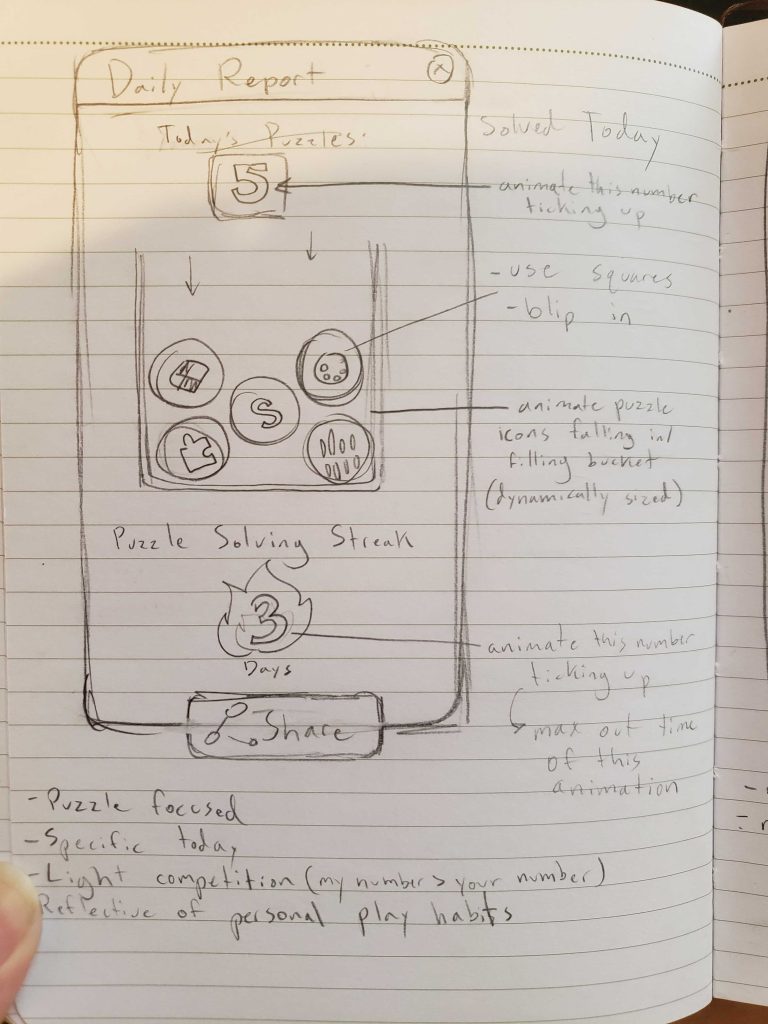 Daily Report
x
Today's Puzzles:
Solved Today
5
animate this number
ticking up
- use squares
- blip in
S
animate puzzle
icons falling in/
filling bucket
(dynamically sized)
Puzzle Solving Streak
3
Days
animate this number
ticking up
max out time
of this
animation
Share
- Puzzle focused
- Specific today
- Light competition (my number > your number)
Reflective of personal play habits